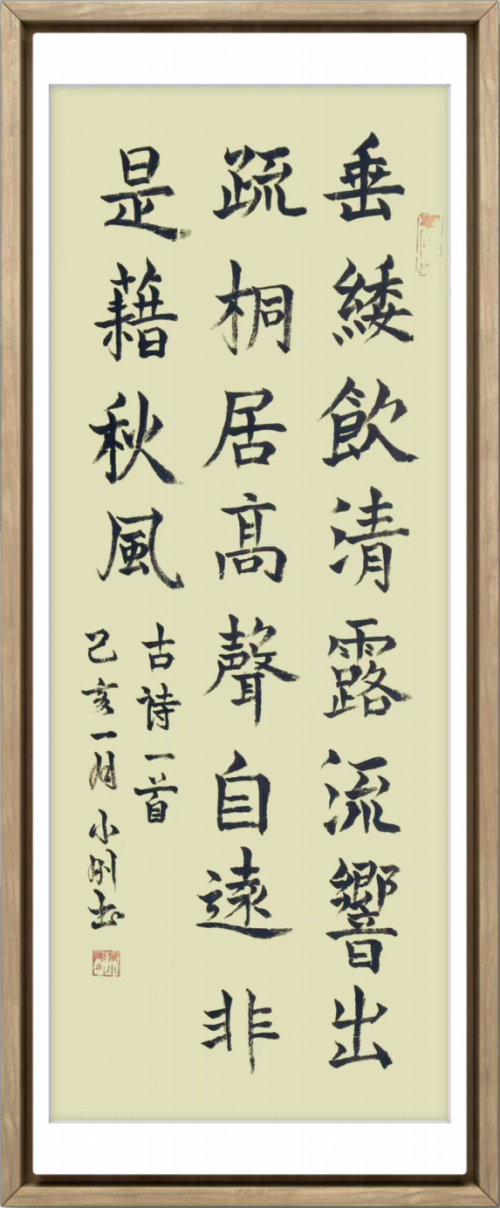 垂緌飲清露流響出
疏桐居高聲自遠非
是藉秋風
古诗一首
己亥一月小刚书